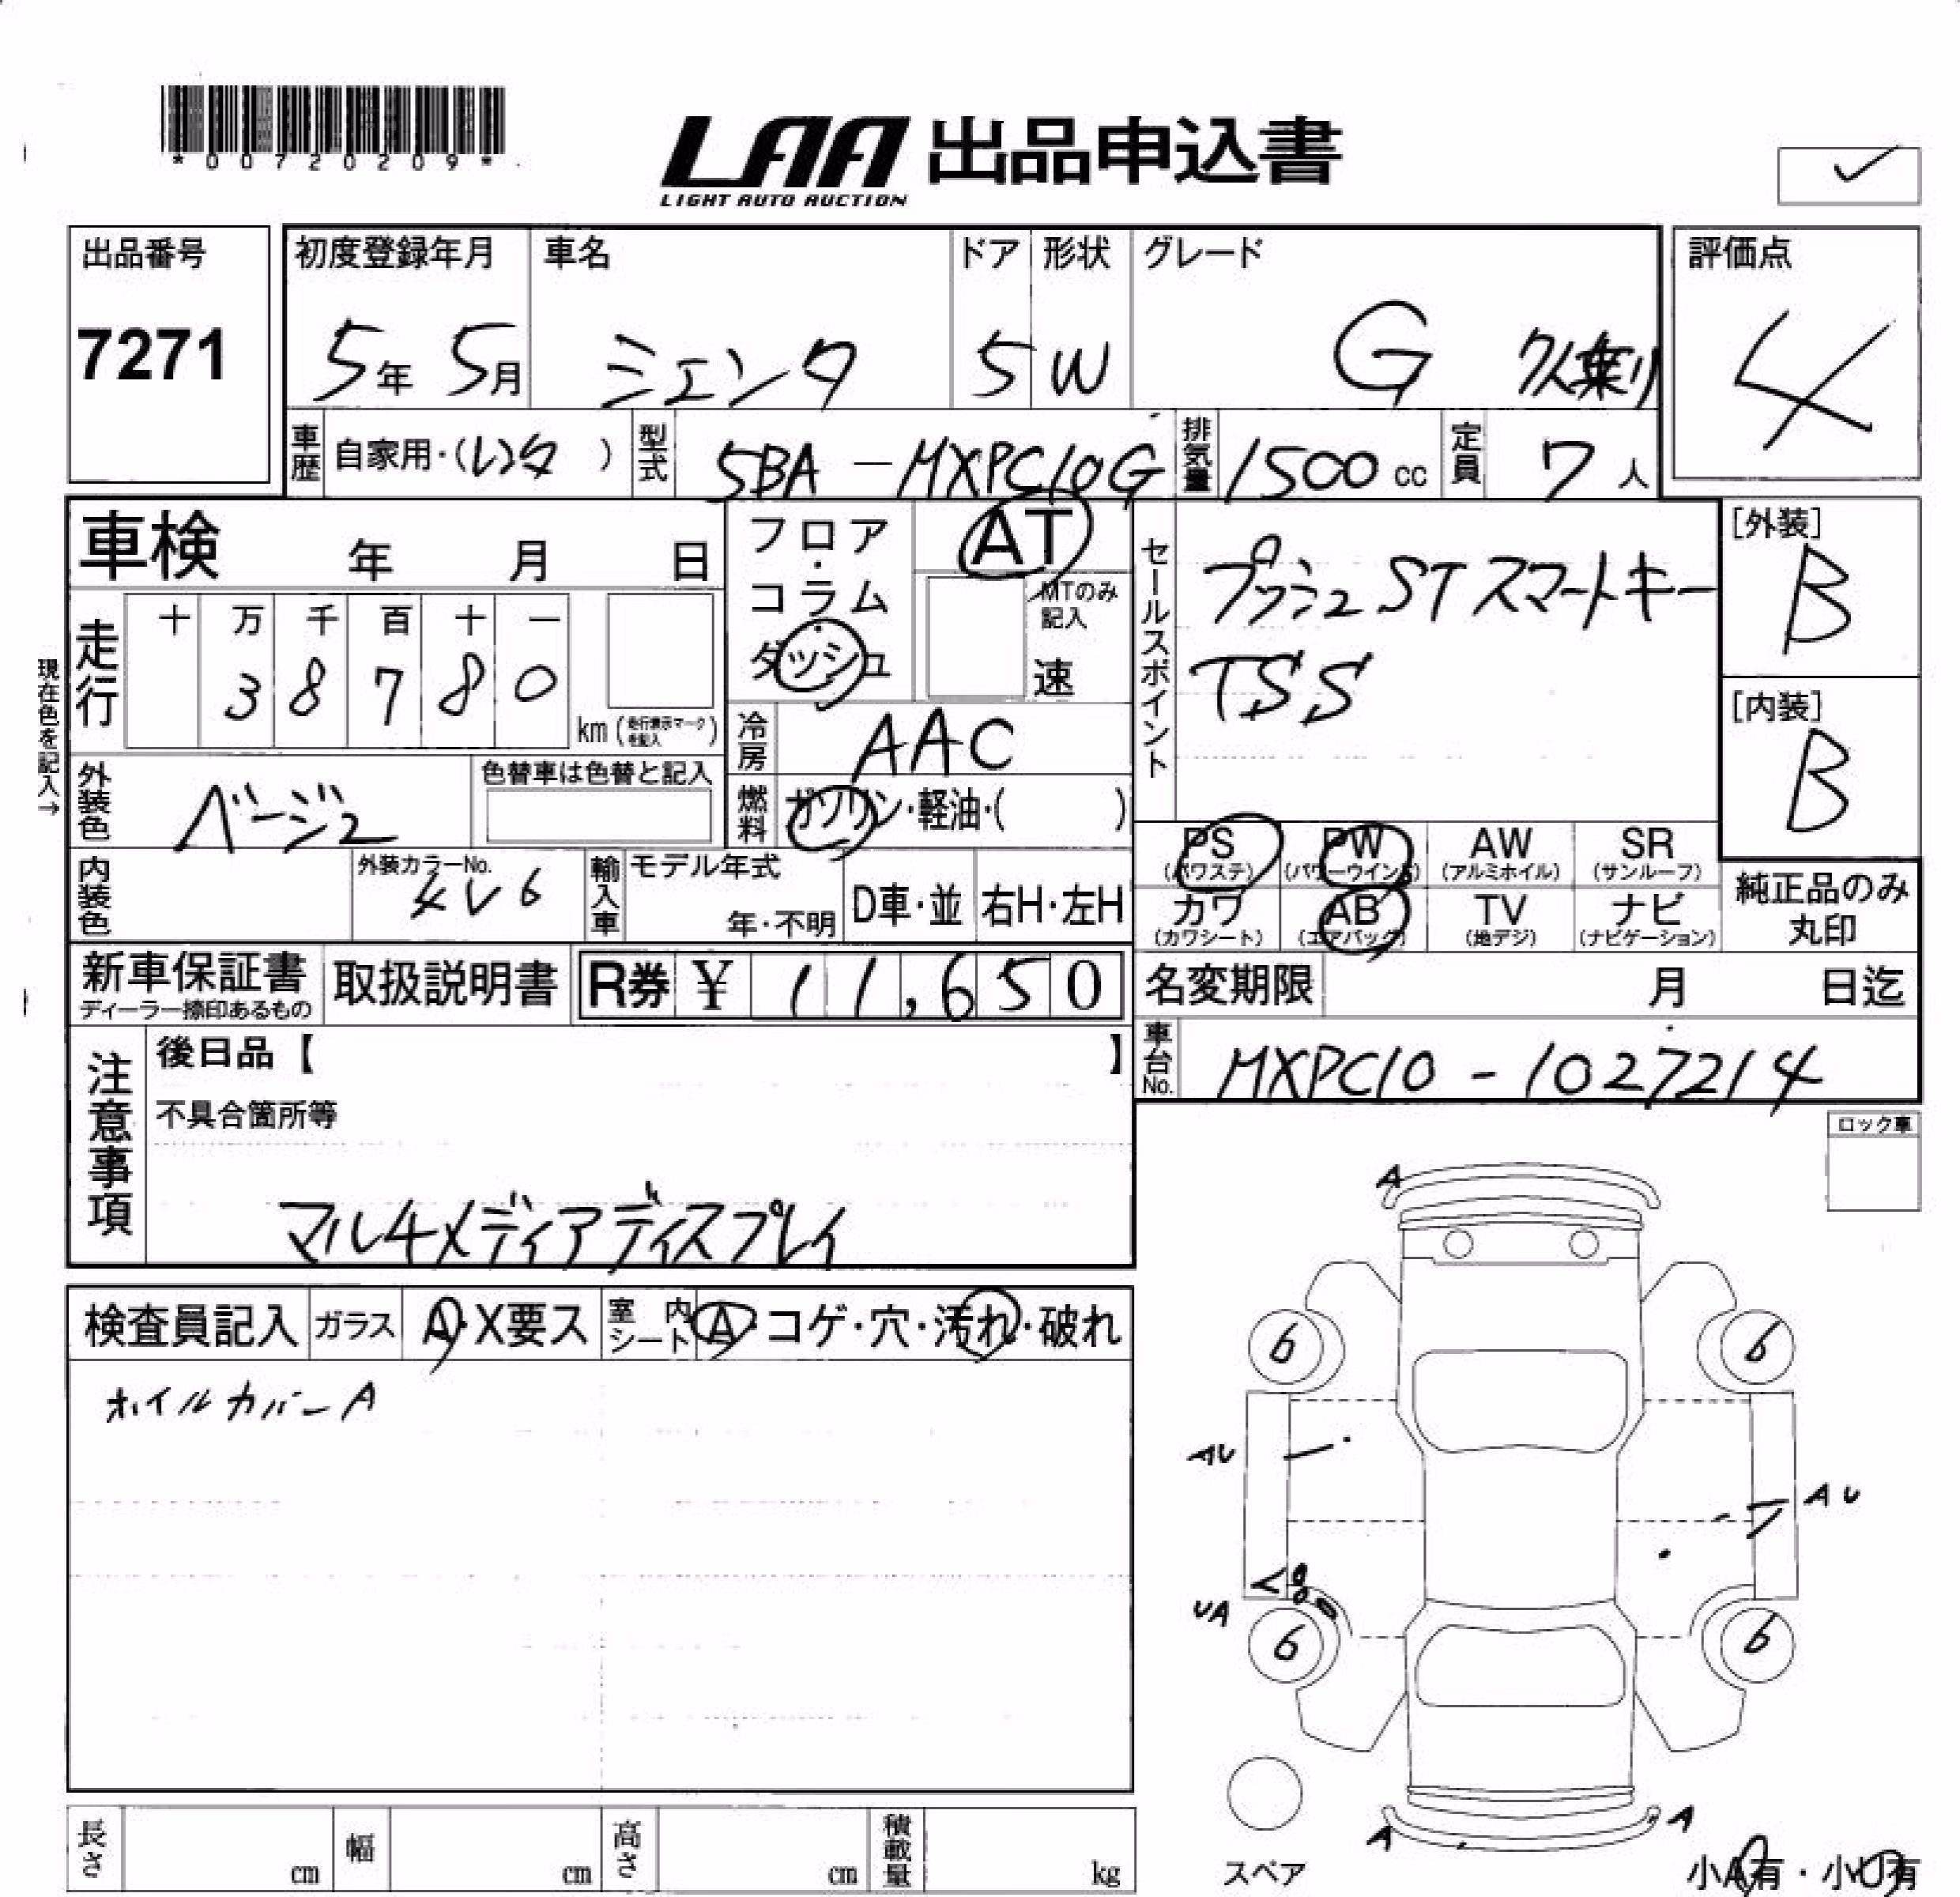 *00720209*
LAA 出品申込書
LIGHT AUTO AUCTION
出品番号
7271
初度登録年月 車名 ドア 形状 グレード
5年 5月 シエンタ 5 W G 7人乗り
評価点
4
車歴 自家用・(レンタ) 型式 5BA-MXPC10G 排気量 1500cc 定員 7人
車検 年 月 日
フロア・コラム・ダッシュ
AT
MTのみ記入
速
セールスポイント
プッシュST スマートキー
TSS
[外装]
B
[内装]
B
現在色を記入→
走行
十 万 千 百 十 一
3 8 7 8 0
km(走行表示マークを記入)
冷房 AAC
外装色 ベージュ 色替車は色替と記入
燃料 ガソリン・軽油・( )
PS AB PW AW SR
(パワステ) (パワーウインド) (アルミホイル) (サンルーフ)
カワ AB TV ナビ
(カワシート) (エアバッグ) (地デジ) (ナビゲーション)
純正品のみ
丸印
内装色 外装カラーNo. 4V6
輸入車 モデル年式 年・不明 D車・並 右H・左H
新車保証書 取扱説明書 R券 ¥11,650
ディーラー捺印あるもの
名変期限 月 日迄
車台No. MXPC10-1027214
注意事項
後日品【 】
不具合箇所等
マルチメディアディスプレイ
ロック車
検査員記入 ガラス A・X要ス 室内シート A・コゲ・穴・汚れ・破れ
ホイルカバーA
A
6 6
AU
AU
UA
6 6
A A
スペア
小A有・小U有
長さ cm 幅 cm 高さ cm 積載量 kg